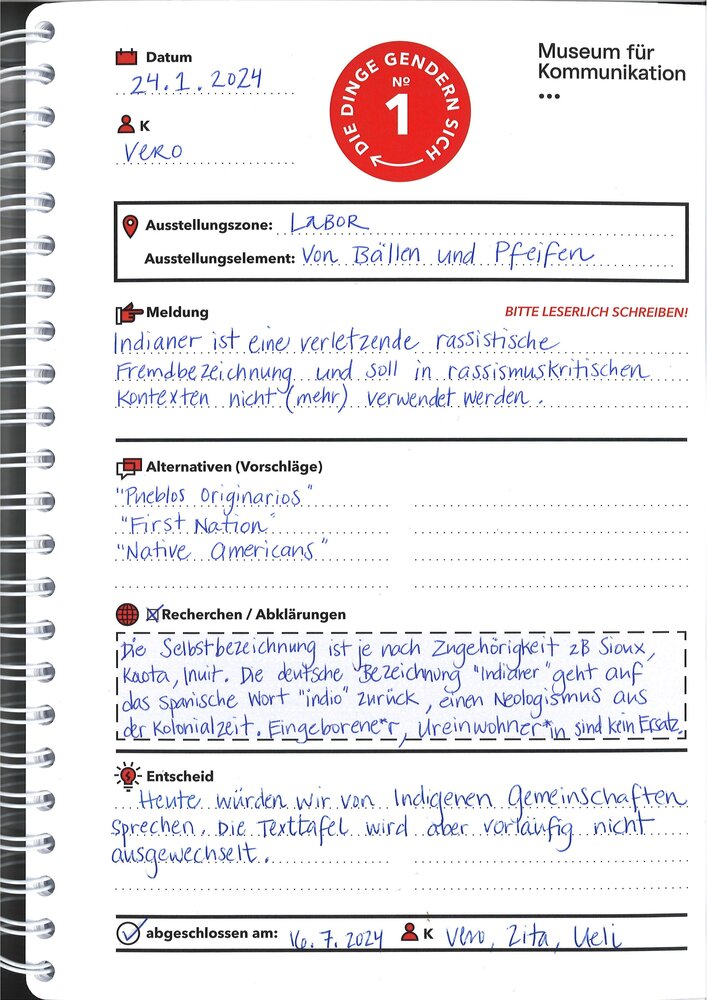 Datum
24.1.2024
K
Vero
DIE DINGE GENDERN SICH
Nº
1
Museum für
Kommunikation
...
Ausstellungszone: Labor
Ausstellungselement: Von Bällen und Pfeifen
Meldung
BITTE LESERLICH SCHREIBEN!
Indianer ist eine verletzende rassistische
Fremdbezeichnung und soll in rassismuskritischen
Kontexten nicht (mehr) verwendet werden.
Alternativen (Vorschläge)
"Pueblos Originarios"
"First Nation"
"Native Americans"
Recherchen / Abklärungen
Die Selbstbezeichnung ist je nach Zugehörigkeit zB Sioux,
Kaota, Inuit. Die deutsche Bezeichnung "Indianer" geht auf
das spanische Wort "indio" zurück, einen Neologismus aus
der Kolonialzeit. Eingeborene*r, Ureinwohner*in sind kein Ersatz.
Entscheid
Heute würden wir von Indigenen Gemeinschaften
sprechen. Die Texttafel wird aber vorläufig nicht
ausgewechselt.
abgeschlossen am: 16.7.2024 K Vero, Zita, Ueli